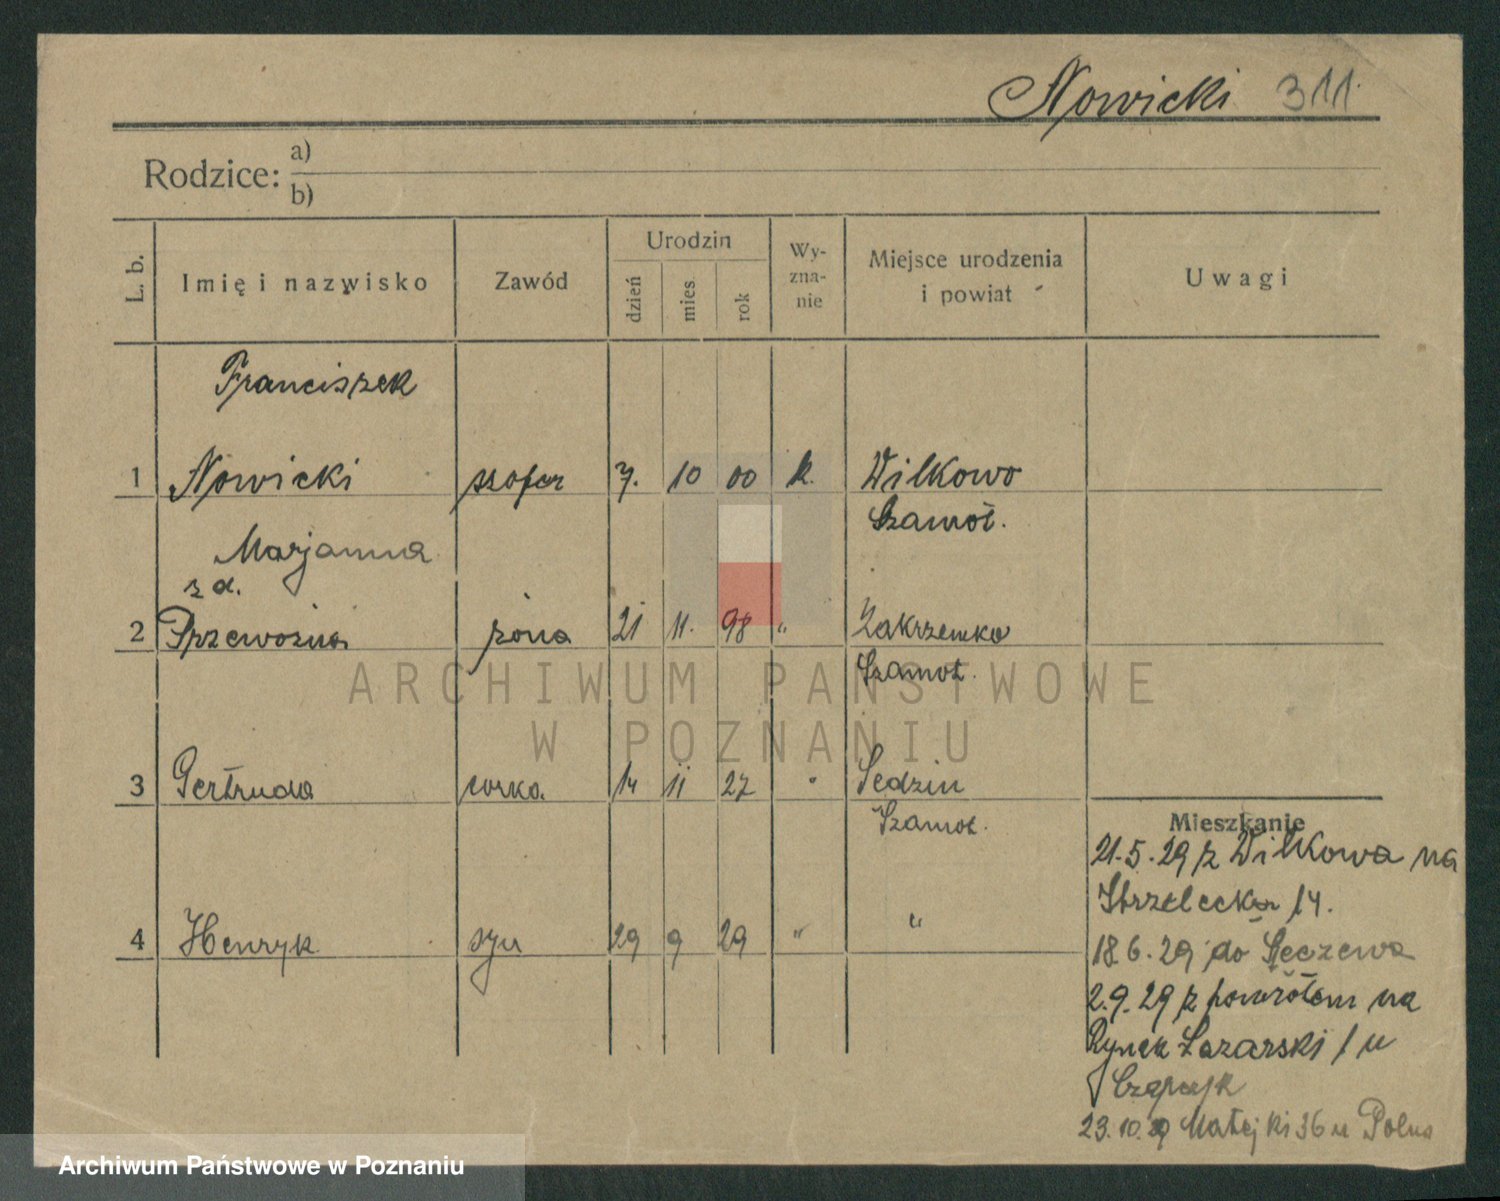 Nowicki 311
Rodzice: a)
b)
L. b.
Imię i nazwisko
Zawód
Urodzin
dzień
mies.
rok
Wy-
zna-
nie
Miejsce urodzenia
i powiat
Uwagi
Franciszek
1 Nowicki szofer 7. 10 00 k. Wilkowo
Szamot.
Marjanna
z d.
2 Przewoźna żona 21 11. 98 " Zakrzewko
Szamot.
3 Gertruda corka 14 11 27 " Sędzin
Szamot.
4 Henryk syn 29 9 29 " "
Mieszkanie
21.5.29 z Wilkowa na
Strzelecka 14.
18.6.29 do
2.9.29 z powrotem na
Rynek Łazarski 1 u
23.10.29 Matejki 36 u
ARCHIWUM PAŃSTWOWE
W POZNANIU
Archiwum Państwowe w Poznaniu